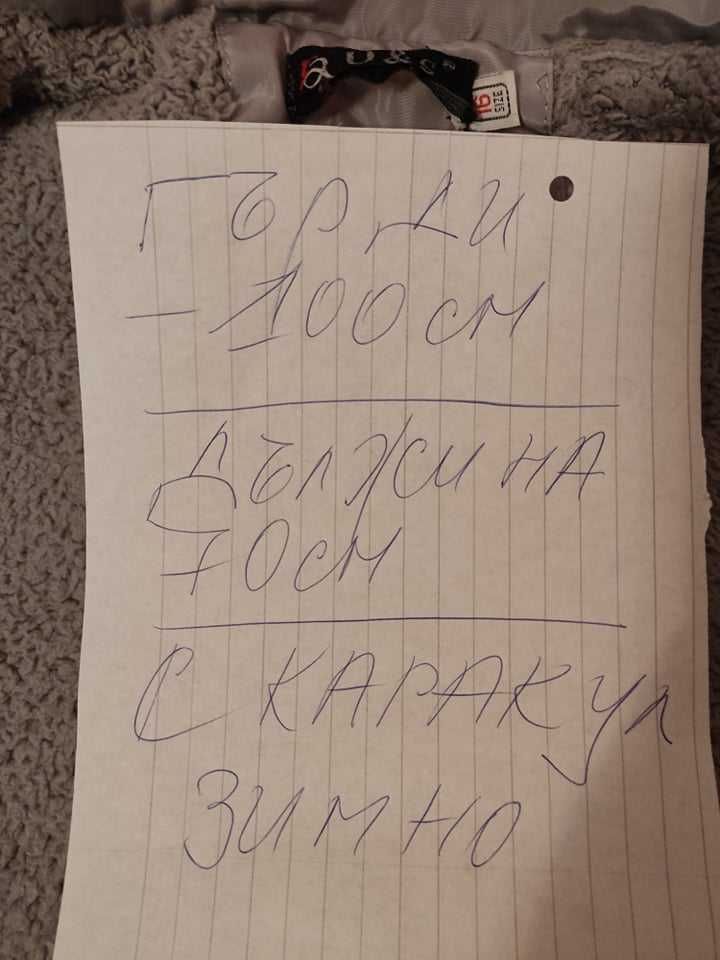 16
SIZE
ГЪРДИ
- 100 см
ДЪЛЖИНА
70 см
С КАРАКУЛ
ЗИМНО